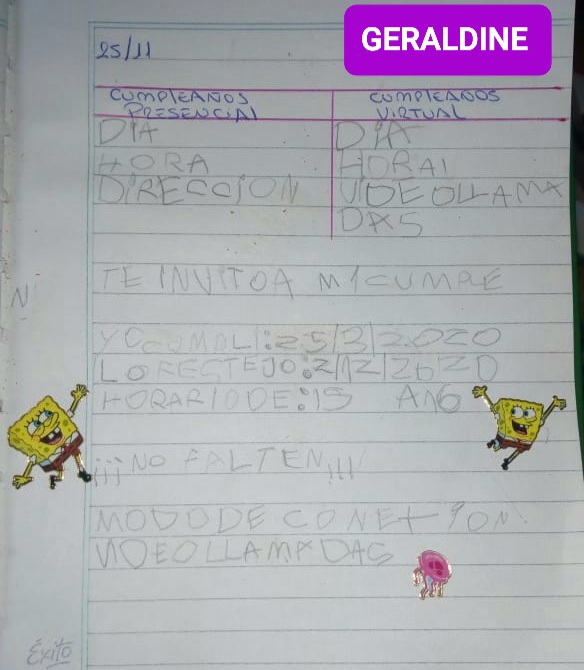 GERALDINE
25/11
CUMPLEAÑOS PRESENCIAL
CUMPLEAÑOS VIRTUAL
DIA
DIA
HORA
HORA
DIRECCION
VIDEOLLAMA
DAS
TE INVITOA MICUMPLE
YO CUMPLI:25/3/2020
LO FESTEJO:2/12/2020
HORARIODE:15 A16
¡¡¡NO FALTEN!!!
MODODE CONEXION
VIDEOLLAMADAS
N
Éxito